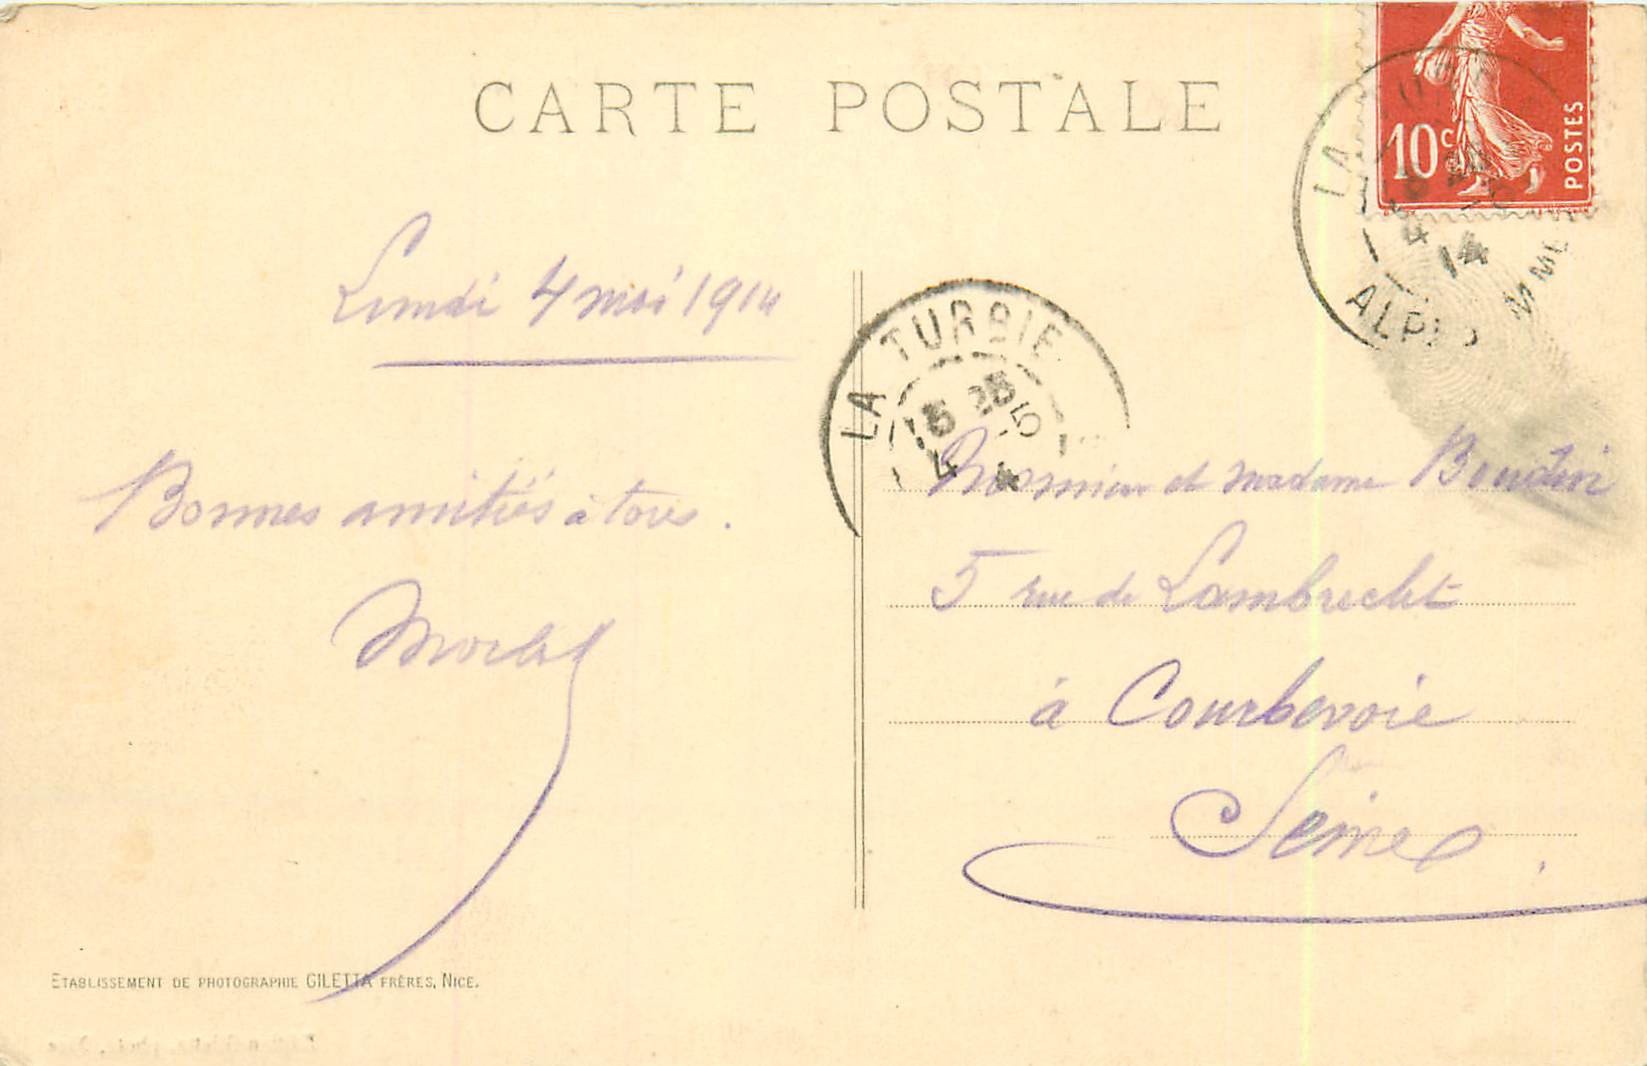 CARTE POSTALE
10c
POSTES
LA
4
14
ALPES MME
Lundi 4 mai 1914
LA TURBIE
5 25
4 -5
Bonnes amitiés à tous.
Monsieur et Madame
5 rue de Lambrecht
à Courbevoie
Seine
ETABLISSEMENT DE PHOTOGRAPHIE GILETTA FRÈRES, NICE.